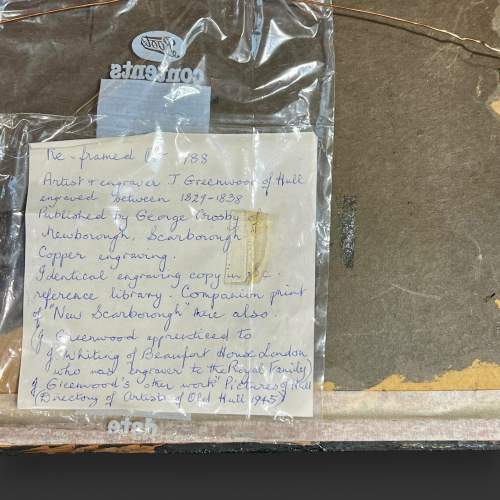 Boots
contents
Re-framed /88
Artist & engraver J Greenwood of Hull
engraved between 1829-1838
Published by George Crosby of
Newborough, Scarborough
Copper engraving.
Identical engraving copy in
reference library. Companion print
of "New Scarborough" there also.
(J Greenwood apprenticed to
J Whiting of Beaufort House London
who was engraver to the Royal Family)
J Greenwood's other work "Pictures of Hull
(Directory of Artists of Old Hull 1945)
date